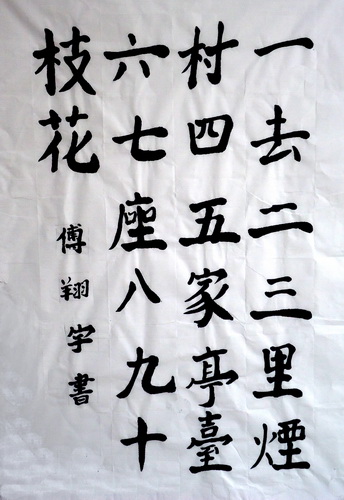 一去二三里煙
村四五家亭臺
六七座八九十
枝花
傅翔宇書